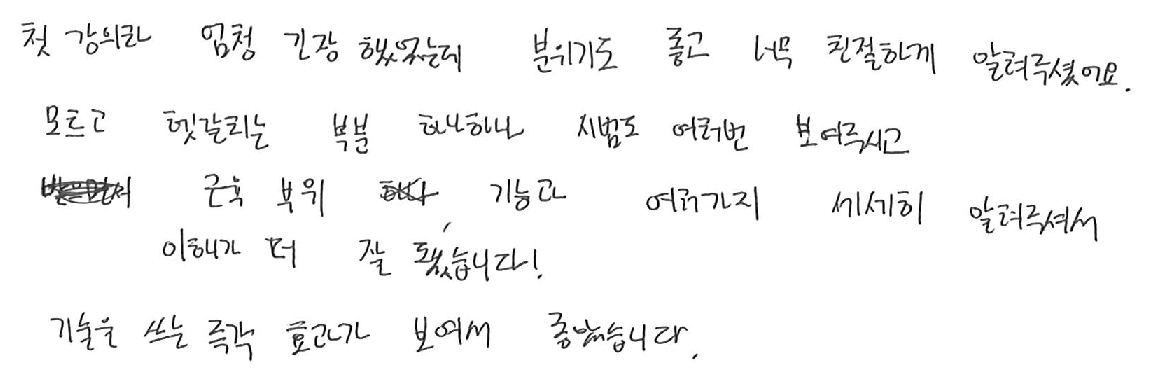 첫 강의라 엄청 긴장 했었는데 분위기도 좋고 너무 친절하게 알려주셨어요.
모르고 헷갈리는 부분 하나하나 시범도 여러번 보여주시고
근육 부위 기능과 여러가지 세세히 알려주셔서
이해가 더 잘 됐습니다!
기술을 쓰는 즉각 효과가 보여서 좋았습니다.